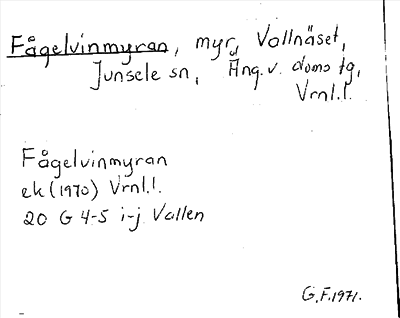 Fågelvinmyran, myr, Vallnäset,
Junsele sn, Ång.v. doms tg,
Vrnl.l.
Fågelvinmyran
ek (1970) Vrnl.l.
20 G 4-5 i-j Vallen
G.F. 1971.